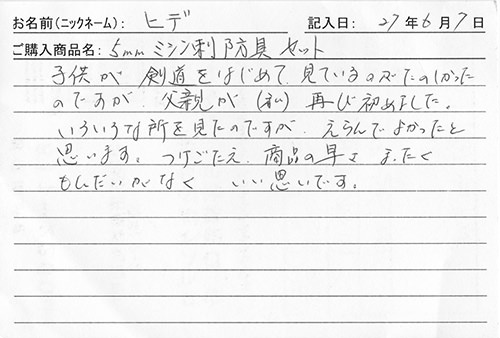 お名前(ニックネーム): ヒデ 記入日: 27年6月7日
ご購入商品名: 5mmミシン刺防具セット
子供が 剣道をはじめて、見ているのでたのしかった
のですが 父親が(私)再び初めました。
いろいろな所を見たのですが、えらんでよかったと
思います。つけごたえ、商品の早さ まったく
もんだいがなく いい思いです。